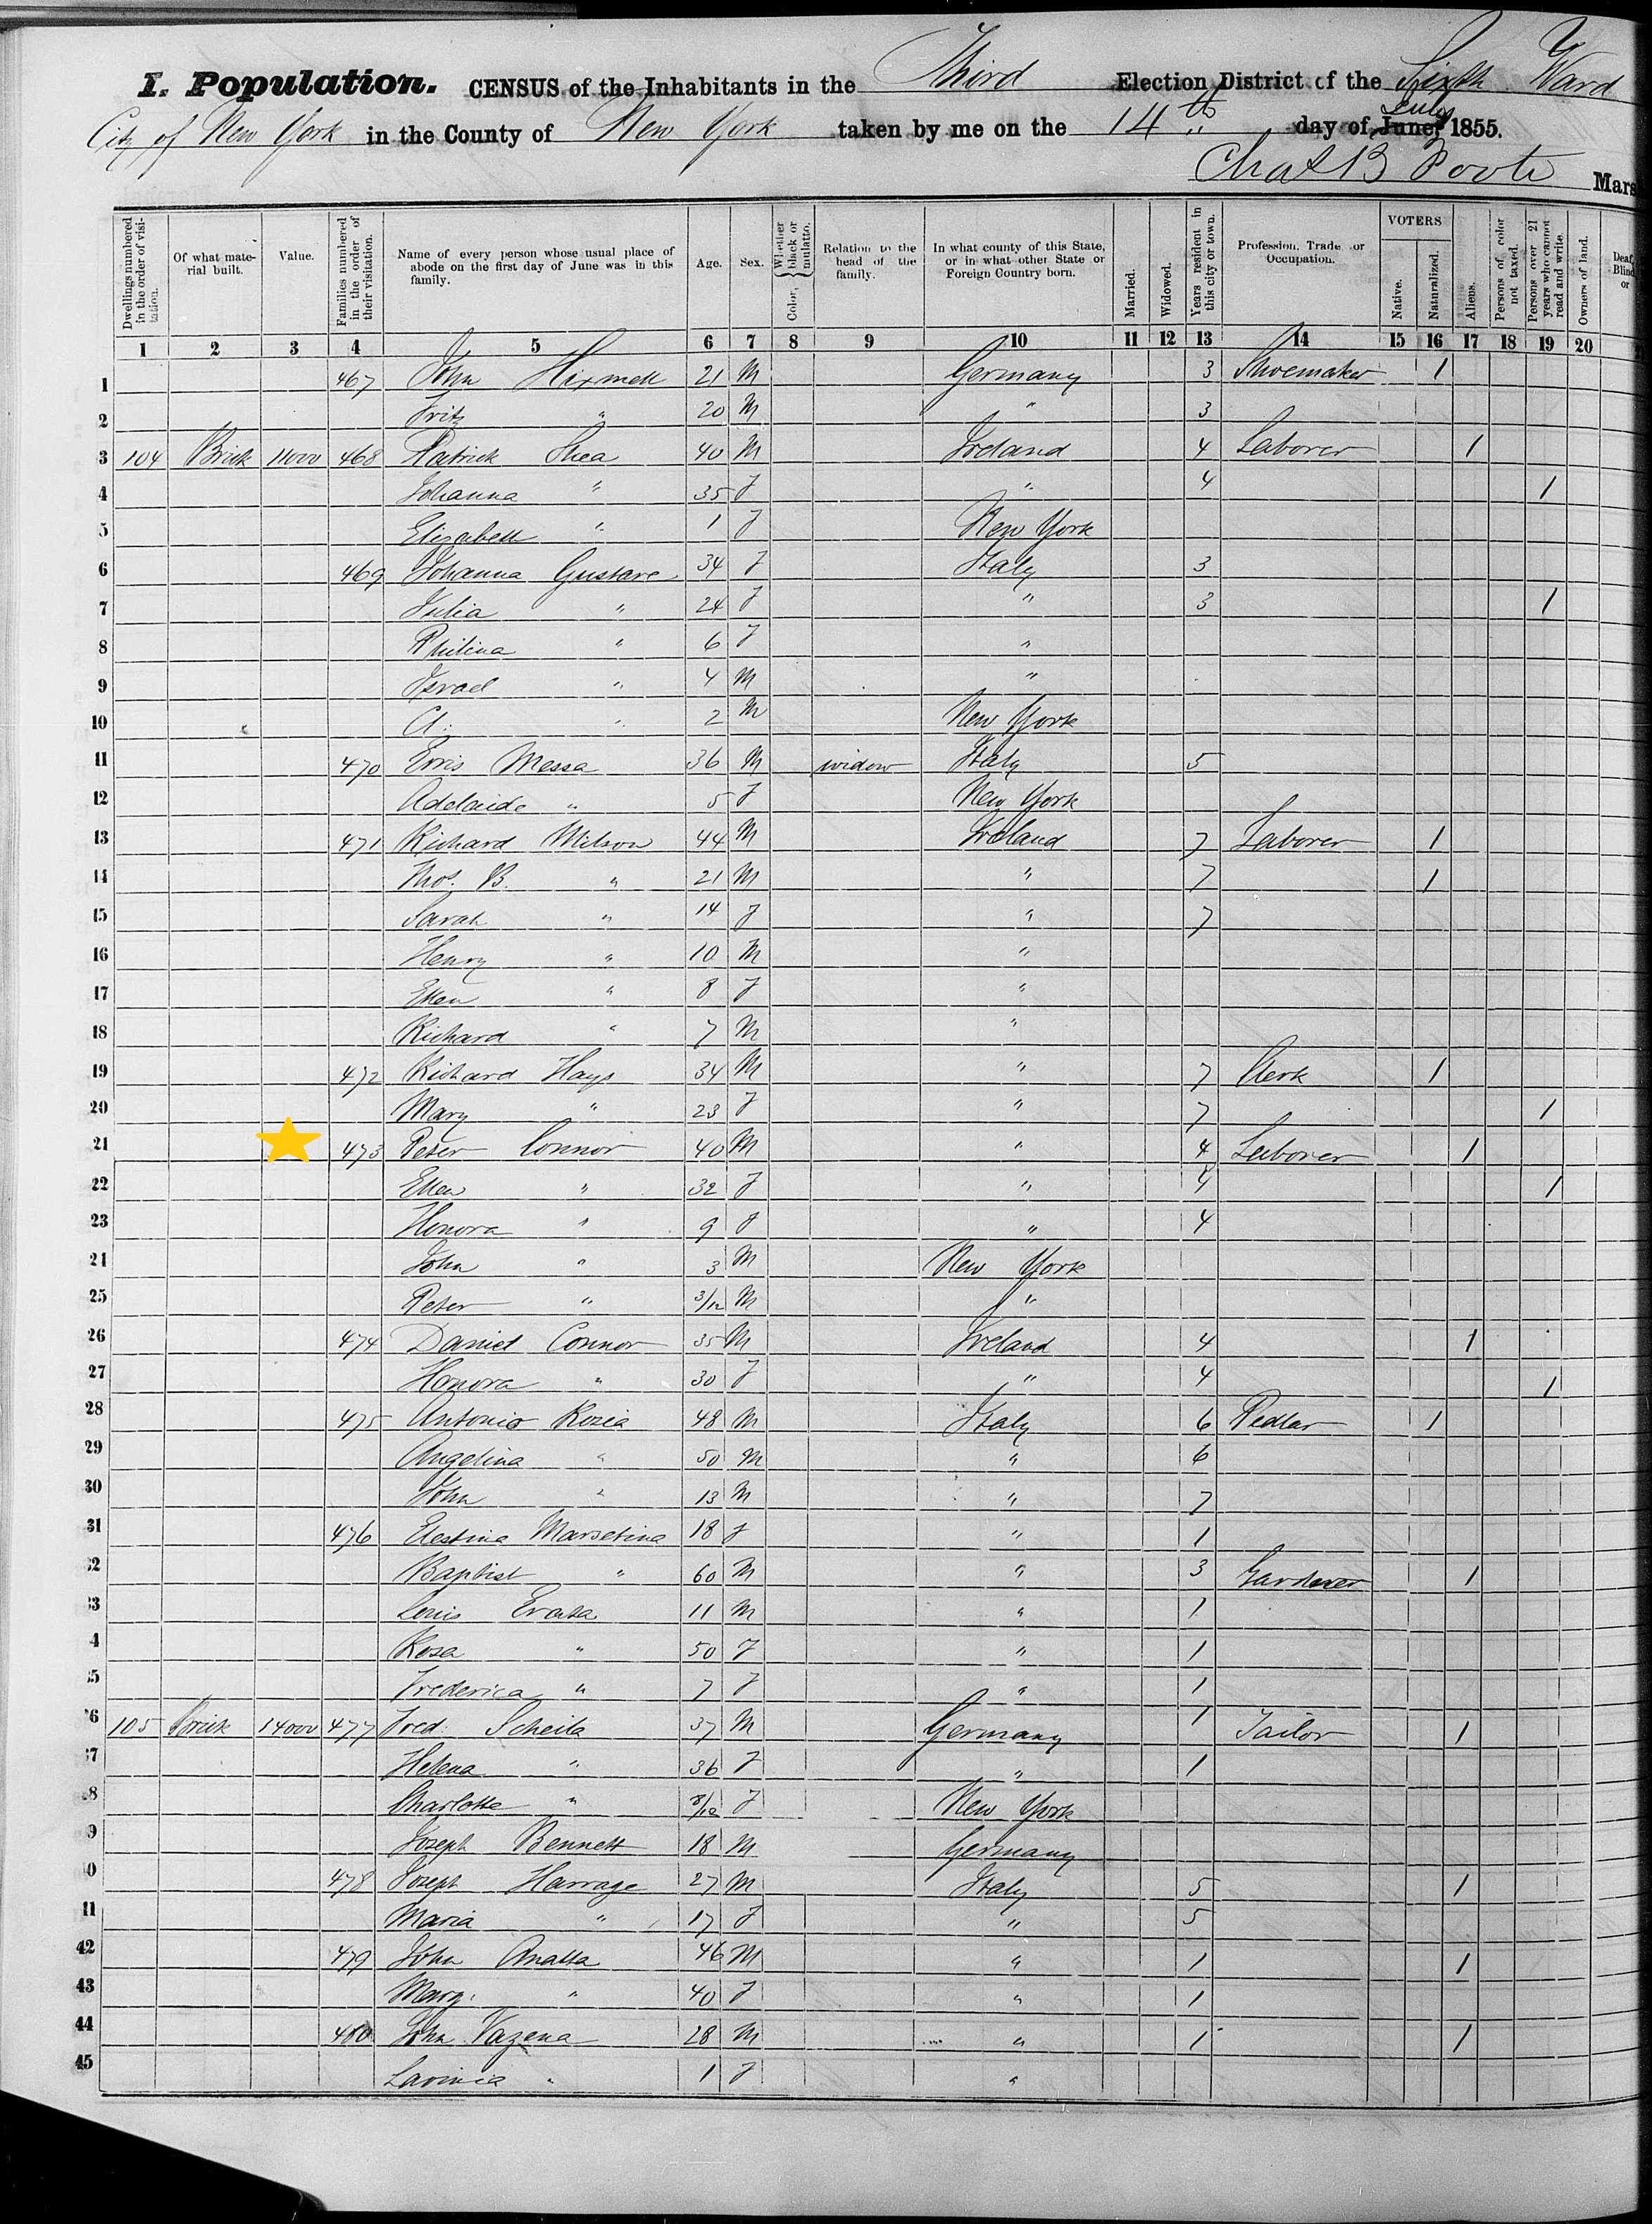 I. Population. CENSUS of the Inhabitants in the Third Election District of the Sixth Ward
City of New York in the County of New York taken by me on the 14th day of June, July 1855.
Chas B Mars
Dwellings numbered in the order of visitation.
Of what material built.
Value.
Families numbered in the order of their visitation.
Name of every person whose usual place of abode on the first day of June was in this family.
Age.
Sex.
Color, Whether black or mulatto.
Relation to the head of the family.
In what county of this State, or in what other State or Foreign Country born.
Married.
Widowed.
Years resident in this city or town.
Profession, Trade or Occupation.
VOTERS
Native.
Naturalized.
Aliens.
Persons of color not taxed.
Persons over 21 years who cannot read and write.
Owners of land.
Deaf, Blind or
1 2 3 4 5 6 7 8 9 10 11 12 13 14 15 16 17 18 19 20
1 467 John 21 M Germany 3 Shoemaker 1
2 Fritz " 20 M " 3
3 104 Brick 11000 468 Patrick Shea 40 M Ireland 4 Laborer 1
4 Johanna " 35 F " 4 1
5 Elisabeth " 1 F New York
6 469 Johanna Gustave 34 F Italy 3
7 Julia " 24 F " 3 1
8 Philina " 6 F "
9 Israel " 4 M "
10 A. " 2 M New York
11 470 Erris Messa 36 M widow Italy 5
12 Adelaide " 5 F New York
13 471 Richard Wilson 44 M Ireland 7 Laborer 1
14 Thos. B. " 21 M " 7 1
15 Sarah " 14 F " 7
16 Henry " 10 M "
17 Ellen " 8 F "
18 Richard " 7 M "
19 472 Richard Hays 34 M " 7 Clerk 1
20 Mary " 23 F " 7 1
21 473 Peter Connor 40 M " 4 Laborer 1
22 Ellen " 32 F " 4 1
23 Honora " 9 F " 4
21 John " 3 M New York
25 Peter " 3/12 M "
26 474 Daniel Connor 35 M Ireland 4 1
27 Honora " 30 F " 4 1
28 475 Antonio Rozia 48 M Italy 6 Pedlar 1
29 Angelina " 50 M " 6
30 John " 13 M " 7
31 476 Elestina Marsetina 18 F " 1
32 Baptist " 60 M " 3 Gardener 1
33 Louis Erata 11 M " 1
4 Rosa " 50 F " 1
35 Frederica " 7 F " 1
36 105 Brick 14000 477 Fred. Scheila 37 M Germany 1 Tailor 1
37 Helena " 36 F " 1
38 Charlotte " 8/12 F New York
9 Joseph Bennett 18 M Germany
0 478 Joseph Harrage 27 M Italy 5 1
11 Maria " 17 F " 5
42 479 John Analta 46 M " 1 1
43 Mary. " 40 F " 1
44 480 John Vazena 28 M " 1 1
45 Lavinia " 1 F "